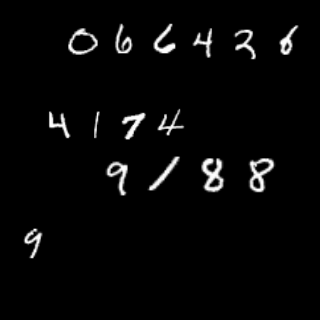 066426
4174
9188
9